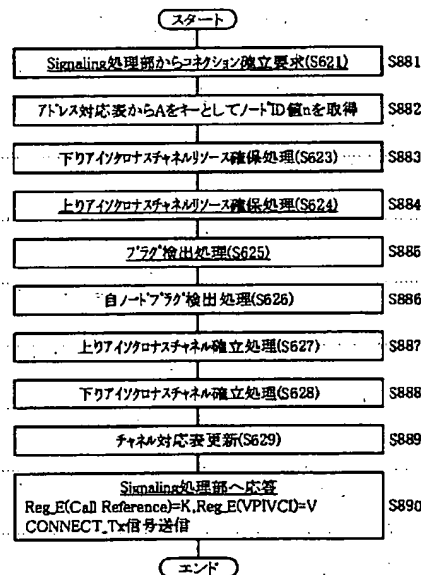 スタート
Signaling処理部からコネクション確立要求(S621) S881
アドレス対応表からAをキーとしてノードID値nを取得 S882
下りアイソクロナスチャネルリソース確保処理(S623) S883
上りアイソクロナスチャネルリソース確保処理(S624) S884
プラグ検出処理(S625) S885
自ノードプラグ検出処理(S626) S886
上りアイソクロナスチャネル確立処理(S627) S887
下りアイソクロナスチャネル確立処理(S628) S888
チャネル対応表更新(S629) S889
Signaling処理部へ応答 S890
Reg_E(Call Reference)=K,Reg_E(VPIVCI)=V
CONNECT_Tx信号送信
エンド